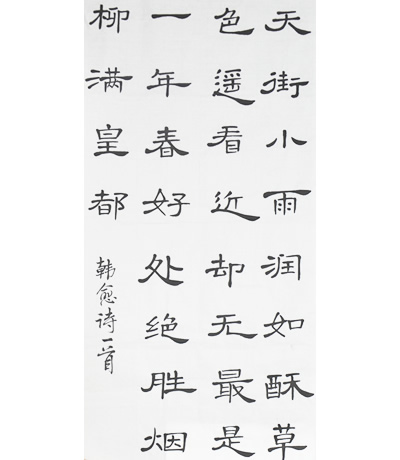 天街小雨润如酥草
色遥看近却无最是
一年春好处绝胜烟
柳满皇都
韩愈诗一首